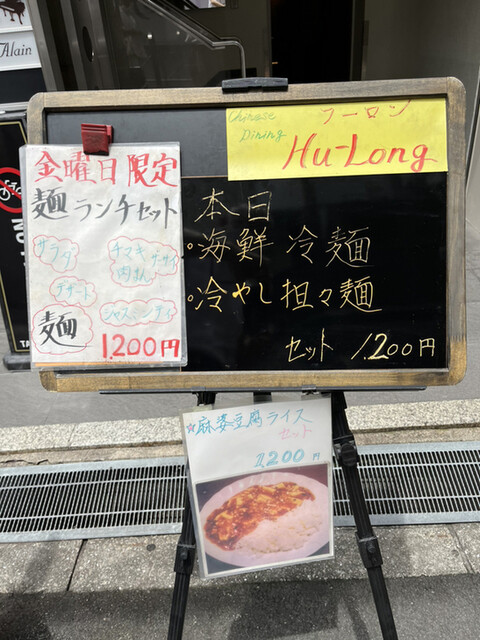 Alain
Chinese
Dining
フーロン
Hu-Long
金曜日限定
麺ランチセット
サラダ
チマキ
肉まん
ザーサイ
デザート
ジャスミンティ
麺
1,200円
本日
・海鮮 冷麺
・冷やし担々麺
セット 1,200円
☆麻婆豆腐ライス
セット
1,200円